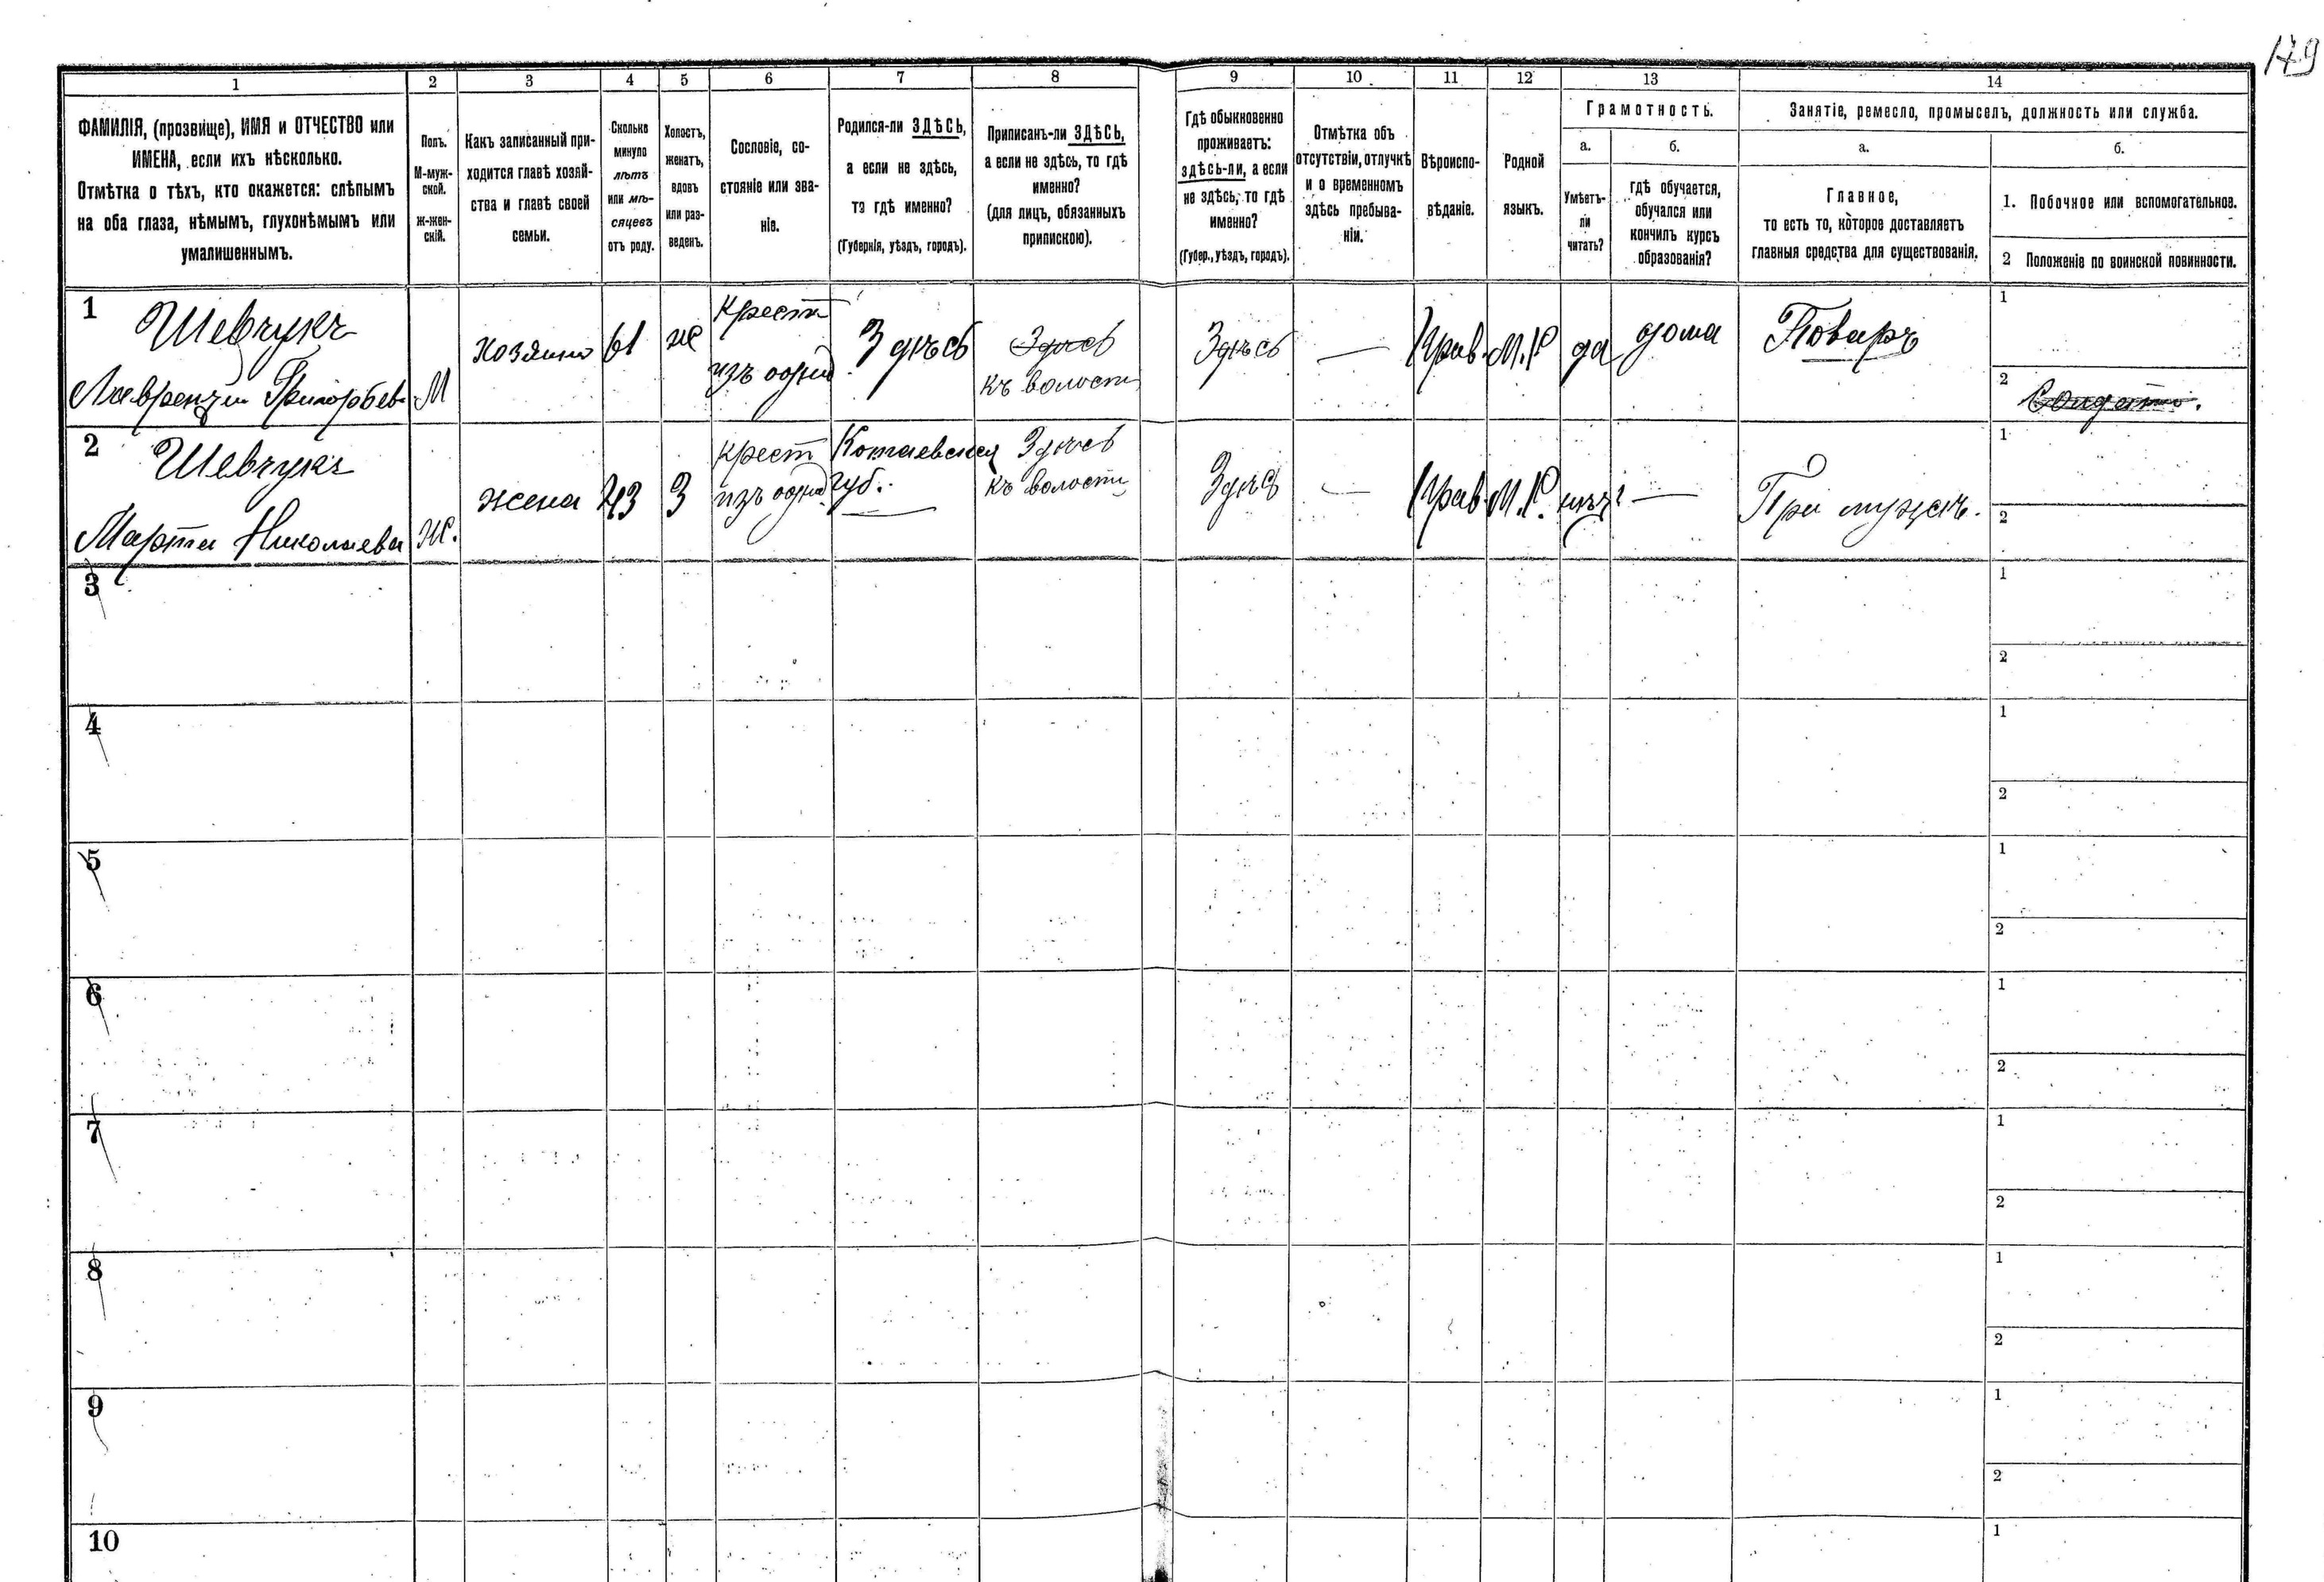 179
1 2 3 4 5 6 7 8 9 10 11 12 13 14
ФАМИЛІЯ, (прозвище), ИМЯ и ОТЧЕСТВО или
ИМЕНА, если ихъ нѣсколько.
Отмѣтка о тѣхъ, кто окажется: слѣпымъ
на оба глаза, нѣмымъ, глухонѣмымъ или
умалишеннымъ.
Полъ.
М-муж-
ской.
ж-жен-
скій.
Какъ записанный при-
ходится главѣ хозяй-
ства и главѣ своей
семьи.
Сколько
минуло
лѣтъ
или мѣ-
сяцевъ
отъ роду.
Холостъ,
женатъ,
вдовъ
или раз-
веденъ.
Сословіе, со-
стояніе или зва-
ніе.
Родился-ли ЗДѢСЬ,
а если не здѣсь,
то гдѣ именно?
(Губернія, уѣздъ, городъ).
Приписанъ-ли ЗДѢСЬ,
а если не здѣсь, то гдѣ
именно?
(для лицъ, обязанныхъ
припискою).
Гдѣ обыкновенно
проживаетъ:
здѣсь-ли, а если
не здѣсь, то гдѣ
именно?
(Губер., уѣздъ, городъ).
Отмѣтка объ
отсутствіи, отлучкѣ
и о временномъ
здѣсь пребыва-
ніи.
Вѣроиспо-
вѣданіе.
Родной
языкъ.
Грамотность.
а.
Умѣетъ-
ли
читать?
б.
гдѣ обучается,
обучался или
кончилъ курсъ
образованія?
Занятіе, ремесло, промыселъ, должность или служба.
а.
Главное,
то есть то, которое доставляетъ
главныя средства для существованія.
б.
1. Побочное или вспомогательное.
2 Положеніе по воинской повинности.
1
Шевчукъ
Лаврентій Григорьев
М
хозяинъ
61
ж
крест
изъ
Здѣсь
Здѣсь
къ волости
Здѣсь
—
Прав.
М.Р
да
дома
Поваръ
1
2
2
Шевчукъ
Марта Николаева
Ж.
жена
43
З
крест
изъ
губ.
Здѣсь
къ волости
Здѣсь
—
Прав
М.Р.
нѣтъ
—
При мужѣ.
1
2
3
1
2
4
1
2
5
1
2
6
1
2
7
1
2
8
1
2
9
1
2
10
1